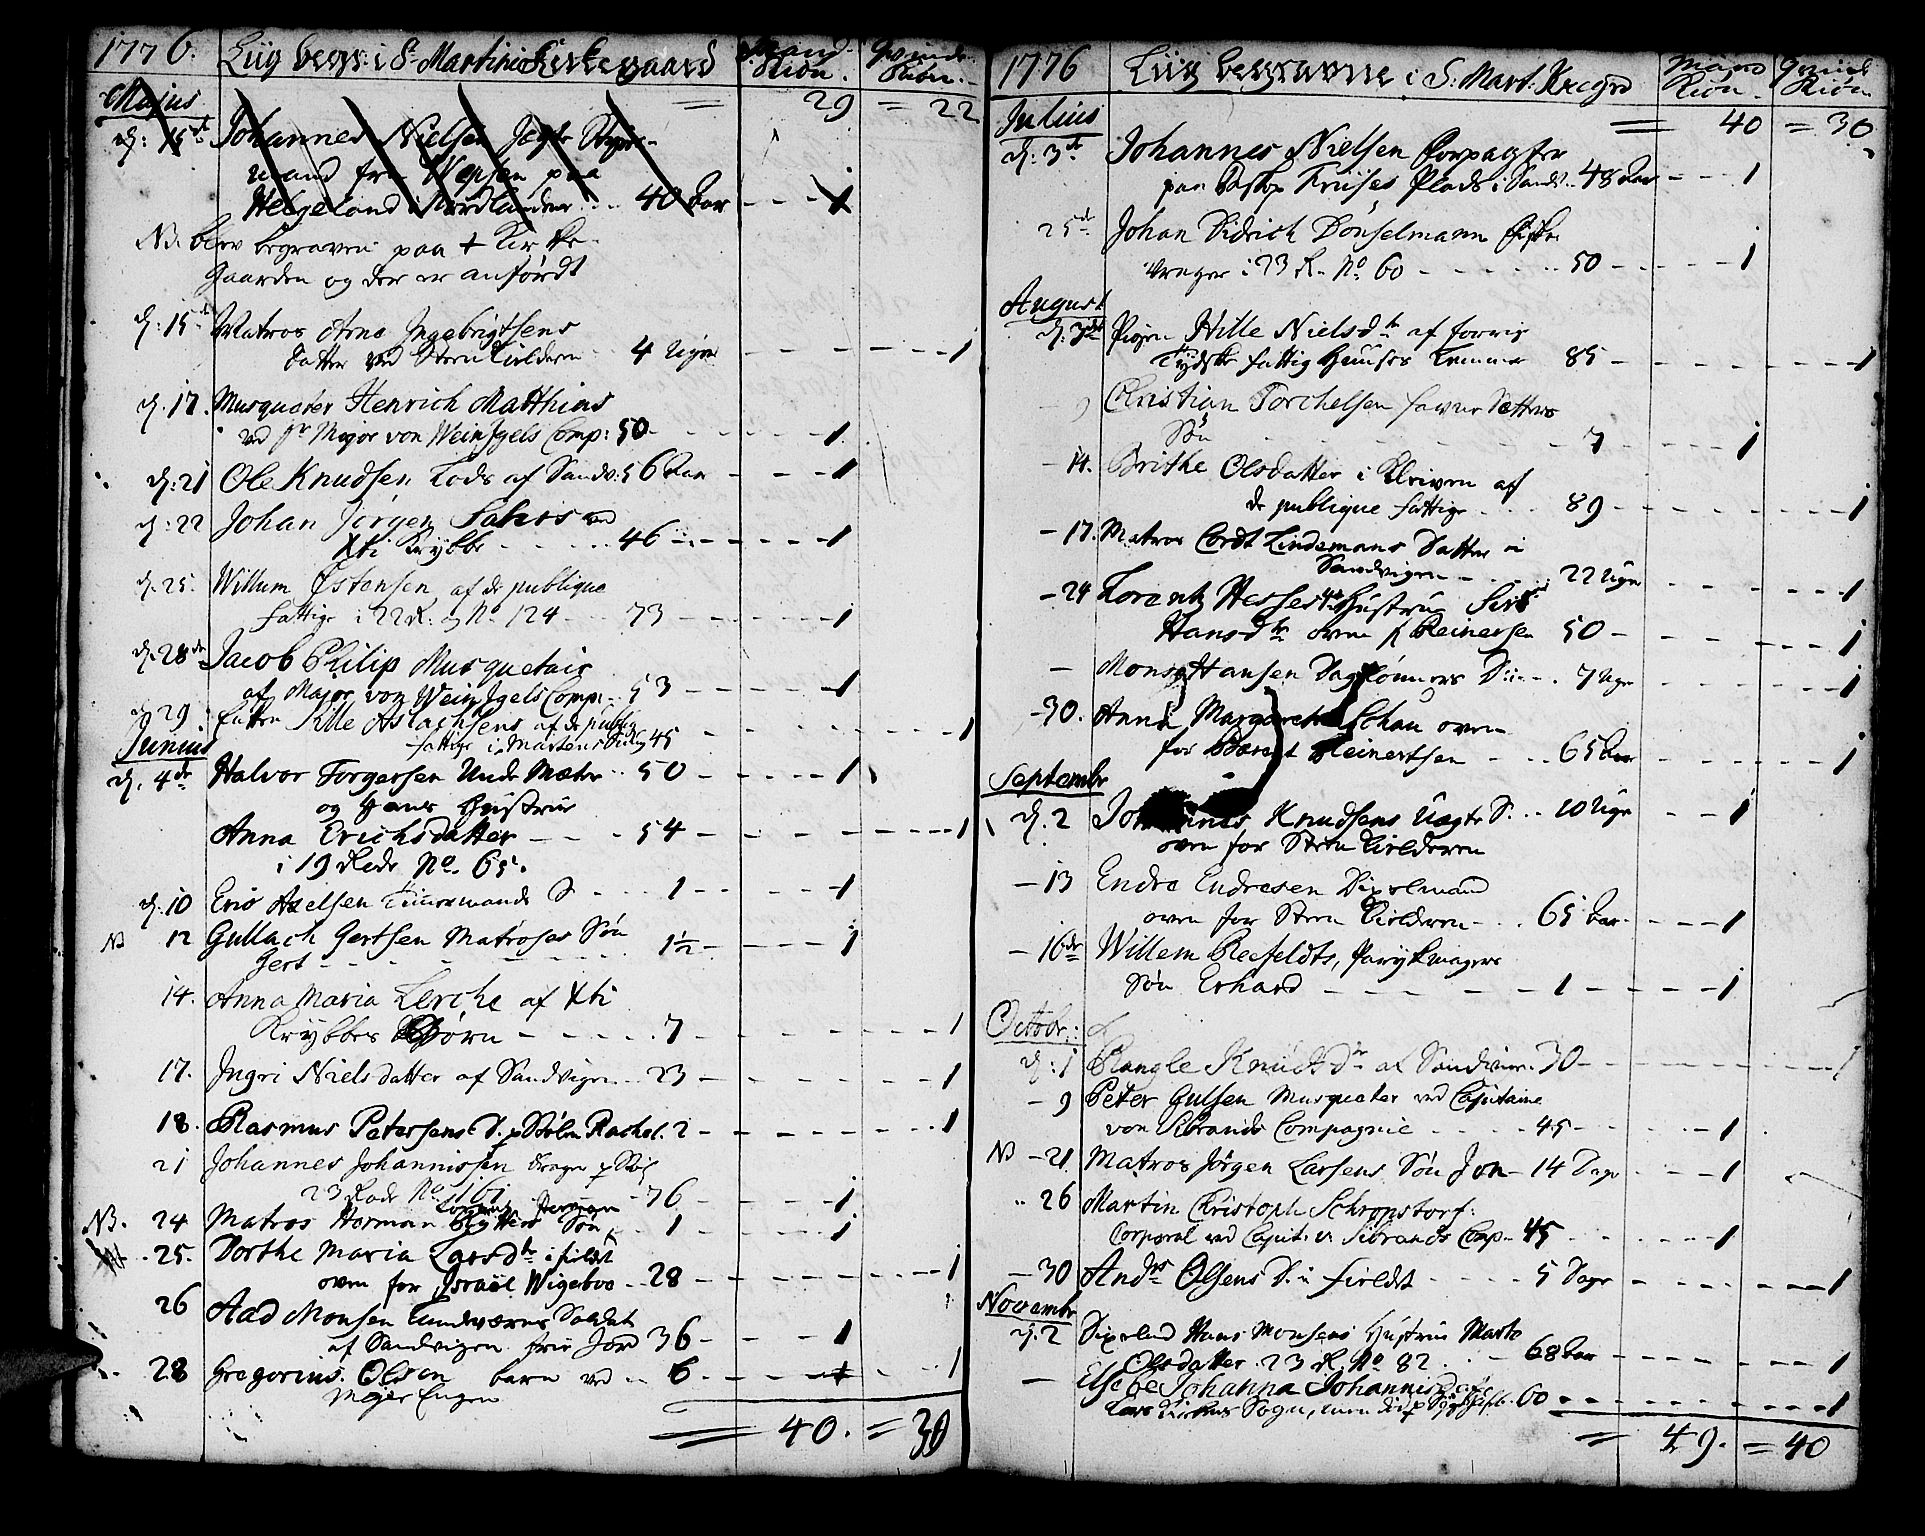 1776. Liig begr: i St Martini Kirkegaard Mand Kiøn. Qvinde Kiøn.
Majus = 29 = 22
d: 15de Johannes Nielsen
mand fra paa
Helgeland i Nordlandene .. 40 Aar - - - 1
NB. blev begraven paa + Kirke-
gaarden og der er anført
d: 15de Matros Arne Ingebrigtsens
datter ved Steen Kielderen 4 Uger - - - - 1
d. 17. Musqueter Henrich Matthias
ved Hr Major von Weinigels Comp: 50 - - - 1
d: 21 Ole Knudsen Lods af Sandv: 56 Aar - - - 1
d: 22 Johan Jørgen ved
Xti Krybbe - - - - 46 - - - - 1
d. 25. Willum Østensen af de publique
fattige i 22 R: No. 124 - - 73 - - - - 1
d. 28de Jacob Philip Musquetair
af Major von Weinigels Comp: - 53 - - - - 1
d 29 Enken Sille Aslachsens af de publiq
fattige i 45 - - - - 1
Junius
d. 4de Halvor Torgersen .. 50 - - - - 1
og Hans Hustrue
Anna Erichsdatter - - - 54 - - - - 1
i 19 Rode No. 65.
d. 10 Eric Axelsen Timermands S - - - 1 - - - 1
NB 12 Gullach Gertsen Matroses Søn
Gert - - - - 1½ - - - - 1
14. Anna Maria Lerche af Xti
Krybbes Børn - - - - 7 - - - - 1
17. Ingri Niels datter af Sandvigen - 23 - - - - 1
18. Rasmus Petersens D. Rachel. 2 - - - - 1
21 Johannes Johannissen Drager
23 Rode No. 161 - 76 - - - 1
NB. 24 Matros Herman Søn Herman - 1 - - - 1
25. Dorthe Maria Larsdtr i fieldet
oven for Israel Wigeboe - 28 - - - - 1
26 Aad Monsen Soldat
af Sandvigen frie Jord 36 - - - 1
28 Gregorius Olsen barn ved - 6 - - - - 1
Møjer Engen
= 40. = 30
1776 Liig begravne i S: Mart: Kregrd Mand Kiøn. Qvinde Kiøn.
Julius = 40 = 30
d: 3de Johannes Nielsen Forpagter
paa Krüses Plads i Sandv .. 48 Aar - - - 1
25de Johan Didrich Dönselmann
Drager i 23 R. No. 60 - - - - 50 - - - - 1
August
d: 3de Pigen Hille Nielsdtr af forrig
Tydske fattig Huuses Lemmer 85 - - - - 1
- 9 Christian Torchelsen
Søn - - - - 7 - - - 1
- 14. Brithe Olsdatter i Kleiven af
de publique fattige - - - 89 - - - - 1
- 17. Matros Cordt Lindemans Datter i
Sandvigen - - - - 22 Uger - - - - 1
- 24 Lorentz Hesses Hustrue Siri
Hansdtr oven f Reinersen 50 - - - - 1
- Mons Hansen Daglønners D: - - 7 Uger - - - 1
- 30. Anna Margarethe Schau oven
for Berent Reinertsen - - . 65 Aar - - - 1
Septembr
d. 2 Johannes Knudsens Vægter S. .. 10 Uger - - - 1
oven for Steen Kielderen
- 13 Endre Endresen Dixelmand
oven for Steen Kielderen - - . 65 Aar. - - - 1
- 16de Willem Reefeldts, Parykmagers
Søn Erhard - - - - - 1 - - - - 1
Octobr:
d: 1 Rangle Knudsdr af Sandviven. 30 - - - - 1
- 9 Peter Gulsen Musqueter ved Capitaine
von Sibrands Compagnie - - - - 45 - - - - 1
NB - 21. Matros Jörgen Larsens Søn Jon - 14 Dage - - - 1
.. 26 Martin Christoph Schropstorf:
Corporal ved Capit: v: Sibrands Comp - 45 - - - - 1
- 30 Andrs Olsens D: i fieldet - - - - 5 Dage - - - - 1
Novembr
d. 2 Dixelmd Hans Monsens Hustrue Marte
Olsdatter. 23 R. No. 82. - - 68 Aar - - - - 1
- Elsebe Johanna Johannisdatr
Kirkes Sogn, men 60 - - - - 1
= 49. = 40